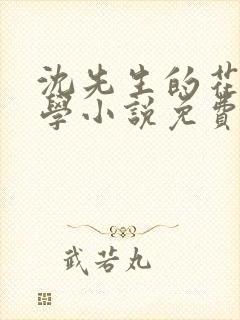 沈先生的花
學小說免費
武若丸